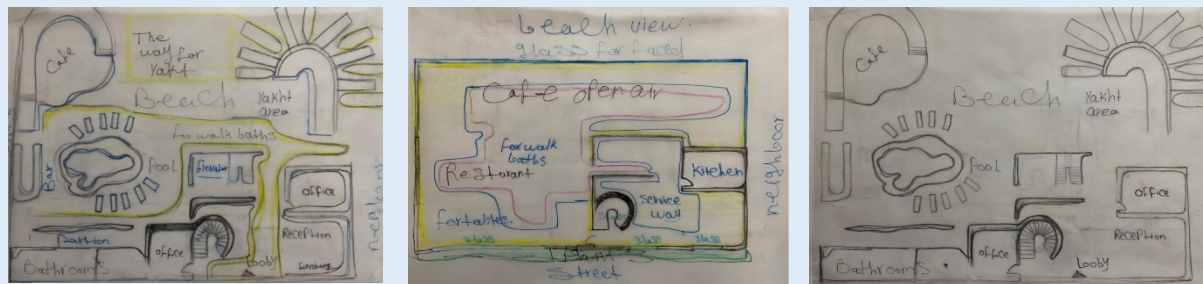 Cafe
The
way for
Yakt
Beach
Yakht
area
for walk baths
Bar
Pool
Elevator
office
Partion
office
Reception
Bathrooms
Looby
beach view.
glass for facad
Cafe open air
for walk
baths
Resturant
Kitchen
neighboor
Service
way
for tables.
glass
glass
glass
Plants
Street
Cafe
Beach
Yakht
area
Pool
office
office
Reception
Bathrooms
Looby